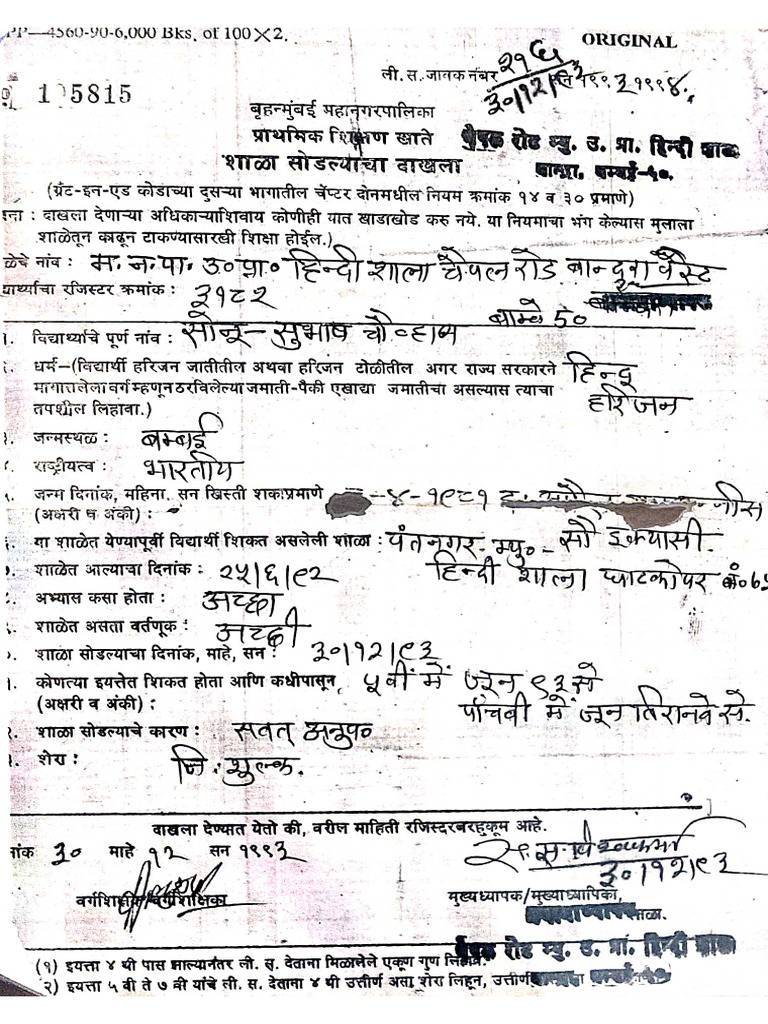 PP—4560-90-6,000 Bks. of 100×2.
ORIGINAL
ली. स. जावक नंबर २१५
३०/१२/९३ १९९३ १९९४.
105815
बृहन्मुंबई महानगरपालिका
प्राथमिक शिक्षण खाते
रोड म्यु. उ. प्रा. हिन्दी
शाळा सोडल्याचा दाखला
बम्बई-५०.
(ग्रॅंट-इन-एड कोडाच्या दुसऱ्या भागातील चॅप्टर दोनमधील नियम क्रमांक १४ व ३० प्रमाणे)
दाखला देणाऱ्या अधिकाऱ्याशिवाय कोणीही यात खाडाखोड करु नये. या नियमाचा भंग केल्यास मुलाला
शाळेतून काढून टाकण्यासारखी शिक्षा होईल.)
ळेचे नांव : म. न. पा. उ० प्रा० हिन्दी शाला चैपल रोड बान्द्रा वैस्ट
यार्थ्याचा रजिस्टर क्रमांक : ३१८२
बाम्बे 50
विद्यार्थ्याचे पूर्ण नांव : सोनू – सुभाष चौव्हाण
धर्म—(विद्यार्थी हरिजन जातीतील अथवा हरिजन टोळीतील अगर राज्य सरकारने हिन्दू
मागासलेला वर्ग म्हणून ठरविलेल्या जमाती-पैकी एखाद्या जमातीचा असल्यास त्याचा
तपशील लिहावा.) हरिजन
जन्मस्थळ : बम्बई
राष्ट्रीयत्व : भारतीय
जन्म दिनांक, महिना, सन खिस्ती शकाप्रमाणे –४–१९८१
(अक्षरी व अंकी) : सौ इक्यासी.
या शाळेत येण्यापूर्वी विद्यार्थी शिकत असलेली शाळा : पंतनगर म्यु०
हिन्दी शाला घाटकोपर
शाळेत आल्याचा दिनांक : २५/६/९२
अभ्यास कसा होता : अच्छा
शाळेत असता वर्तणूक : अच्छी
शाळा सोडल्याचा दिनांक, माहे, सन : ३०/१२/९३
कोणत्या इयत्तेत शिकत होता आणि कधीपासून ५वीं में जून ९३ से
(अक्षरी व अंकी) : पाँचवी में जून तिरानवे से.
शाळा सोडल्याचे कारण : सवत् अनुप०
शेरा : नि: शुल्क.
दाखला देण्यात येतो की, वरील माहिती रजिस्टरबरहुकूम आहे.
नांक ३० माहे १२ सन १९९३
३०/१२/९३
वर्गशिक्षक/वर्गशिक्षिका
मुख्यध्यापक/मुख्याध्यापिका,
शाळा.
रोड म्यु. उ. प्रा. हिन्दी
(१) इयत्ता ४ थी पास झाल्यानंतर ली. स. देताना मिळालेले एकूण गुण
२) इयत्ता ५ वी ते ७ वी यांचे ली. स. देताना ४ थी उत्तीर्ण असा शेरा लिहून, उत्तीर्ण